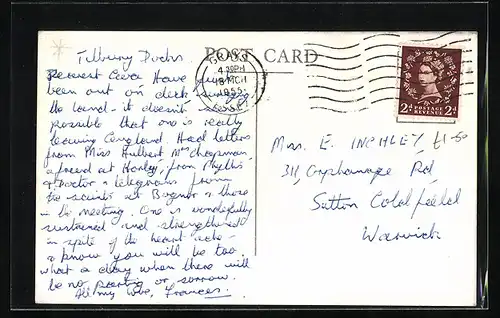 Tilbury Docks
POST CARD
GRAYS
4.30PM
18 MCH
1955
Dearest Ceva Have just
been out on deck
the band - it doesn't seem
possible that one is really
leaving England Had letters
from Miss Hulbert Mrs Chapman
a friend at Hanley, from Phyllis
a Doctor & telegrams from
the saints at Bognor & those
in the meeting. One is wonderfully
sustained and strengthened
in spite of the heart ache -
& know you will be too.
what a day when there will
be no parting or sorrow.
All my love, Frances.
2d POSTAGE REVENUE 2d
Mrs. E. INCHLEY £1-50
311, Orphanage Rd,
Sutton Coldfield
Warwick